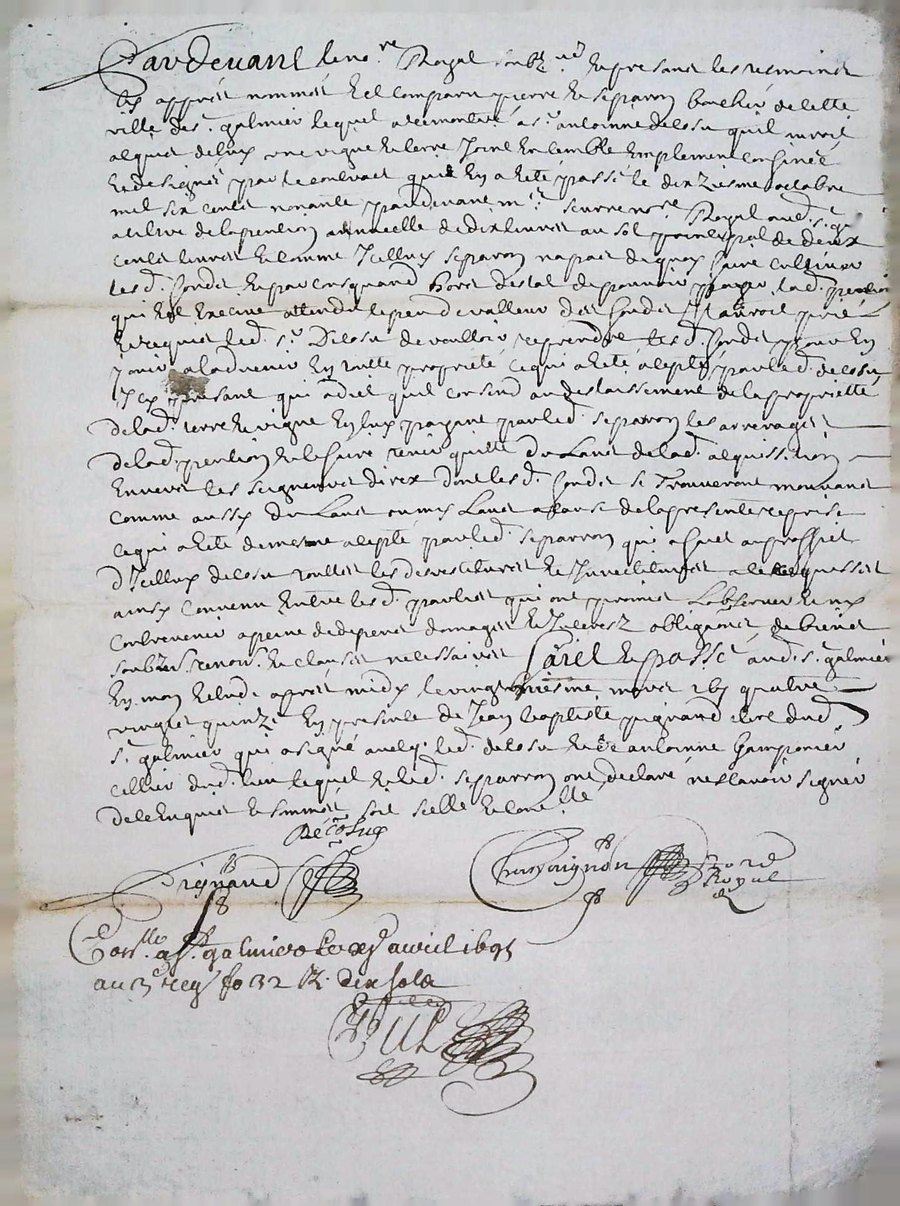 Pardevant le no.re Royal soubz.né et presans les tesmoins
bas apprès nommés est comparu pierre separron boucher de cette
ville de s.t galmier lequel a remontré a s.r antoinne delosu quil auroit
acquis de luy une vigne et terre Joint ensemble emplement confinée
et designée par le contract quil en a esté passé le dixziesme octobre
mil six cents nonante pardevant m.r no.re Royal aud. s.t g.
a tiltre de la pention annuelle de dix livres au sol principal de deux
cents livres et comme Jcelluy separron na pas de quoy faire cultiver
les d. fondz et par consequand hors destat de pouvoir payer lad. pention
qui est excecive attendu le peu de valleur des fondz Il auroit prié
et requis led. s.r Delosu de voulloir reprendre les d. fondz pour en
jouir a ladvenir en toutte propriété ce qui a esté accepté par led. delosu
Jcy present qui a dict quil consend au deslaissement de la propriette
de lad. terre et vigne en luy payant par led. separron les arrerages
de lad. pention et le faire tenir quitte du Laud de lad. acquissition
envers les seigneurs directz dont les d. fondz se trouveront mouvans
comme aussy du Laud ou my Laud a cause de la presente reprise
ce qui a esté de mesme accepté par led. separron qui a faict au proffict
d'Jcelluy delosu touttes les desvestitures et Jnvestitures a ce requisses
ainsy convenu entre les d. parties qui ont promis L'observer et ny
contrevenir a peine de depens domages et Jnterestz obligations de biens
soubzmis.ons renons.ons et clauses necessaires Faict et passé aud. s.t galmier
en mon estude apprès midy le vingt mars 16C quatre
vingts quinze en presence de Jean baptiste pignand clerc dud.
s.t galmier qui a signé avecq. led. delosu et de antoinne
cellier dud. lieu lequel et led. separron ont declaré ne scavoir signer
de ce enquis et sommés soit scellé et con.llé
Delosu
Pignand
no.re Royal
Con.llé a s.t galmier le avril 1695
au 3e reg. fo 32 R. dix sols